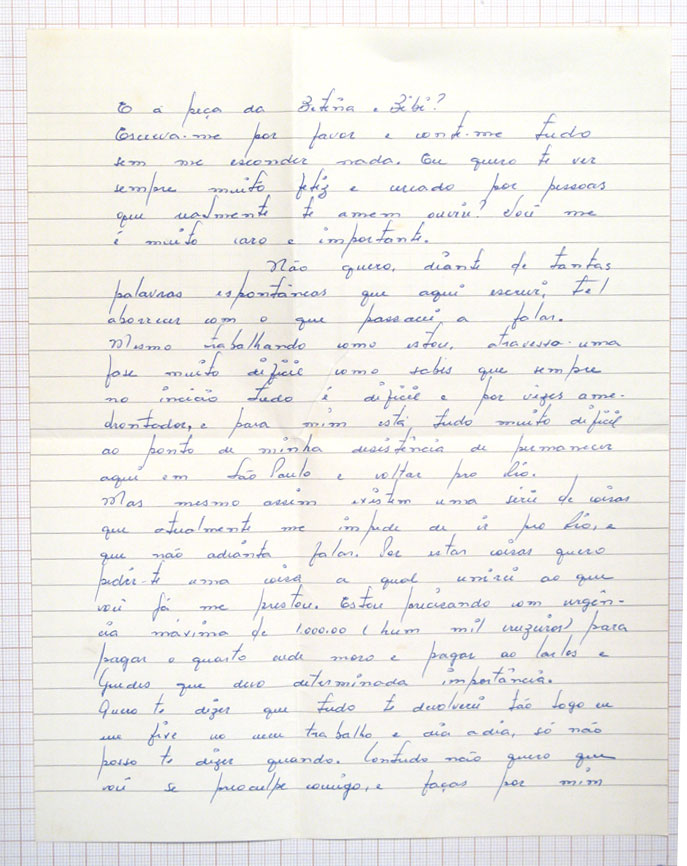 E a peça da Betina e Bibi?
Escreva-me por favor e conte-me tudo
sem me esconder nada. Eu quero te ver
sempre muito feliz e cercado por pessoas
que realmente te amem ouviu? Você me
é muito caro e importante.
Não quero, diante de tantas
palavras espontâneas que aqui escrevi, te
aborrecer com o que passarei a falar.
Mesmo trabalhando como estou, atravesso uma
fase muito difícil como sabis que sempre
no inicio tudo é dificil e por vezes ame-
drontador, e para mim está tudo muito dificil
ao ponto de minha desistência de permanecer
aqui em São Paulo e voltar pro Rio.
Mas mesmo assim existem uma série de coisas
que atualmente me impede de ir pro Rio, e
que não adianta falar. Por estar coisas quero
pedir-te uma coisa a qual unirei ao que
você já me prestou. Estou precisando com urgên-
cia máxima de 1.000,00 (hum mil cruzeiros) para
pagar o quarto onde moro e pagar ao Carlos e
Guedes que devo determinada importância.
Quero te dizer que tudo te devolverei tão logo eu
me fixe no meu trabalho e dia a dia, só não
posso te dizer quando. Contudo não quero que
você se preoculpe comigo, e faças por mim